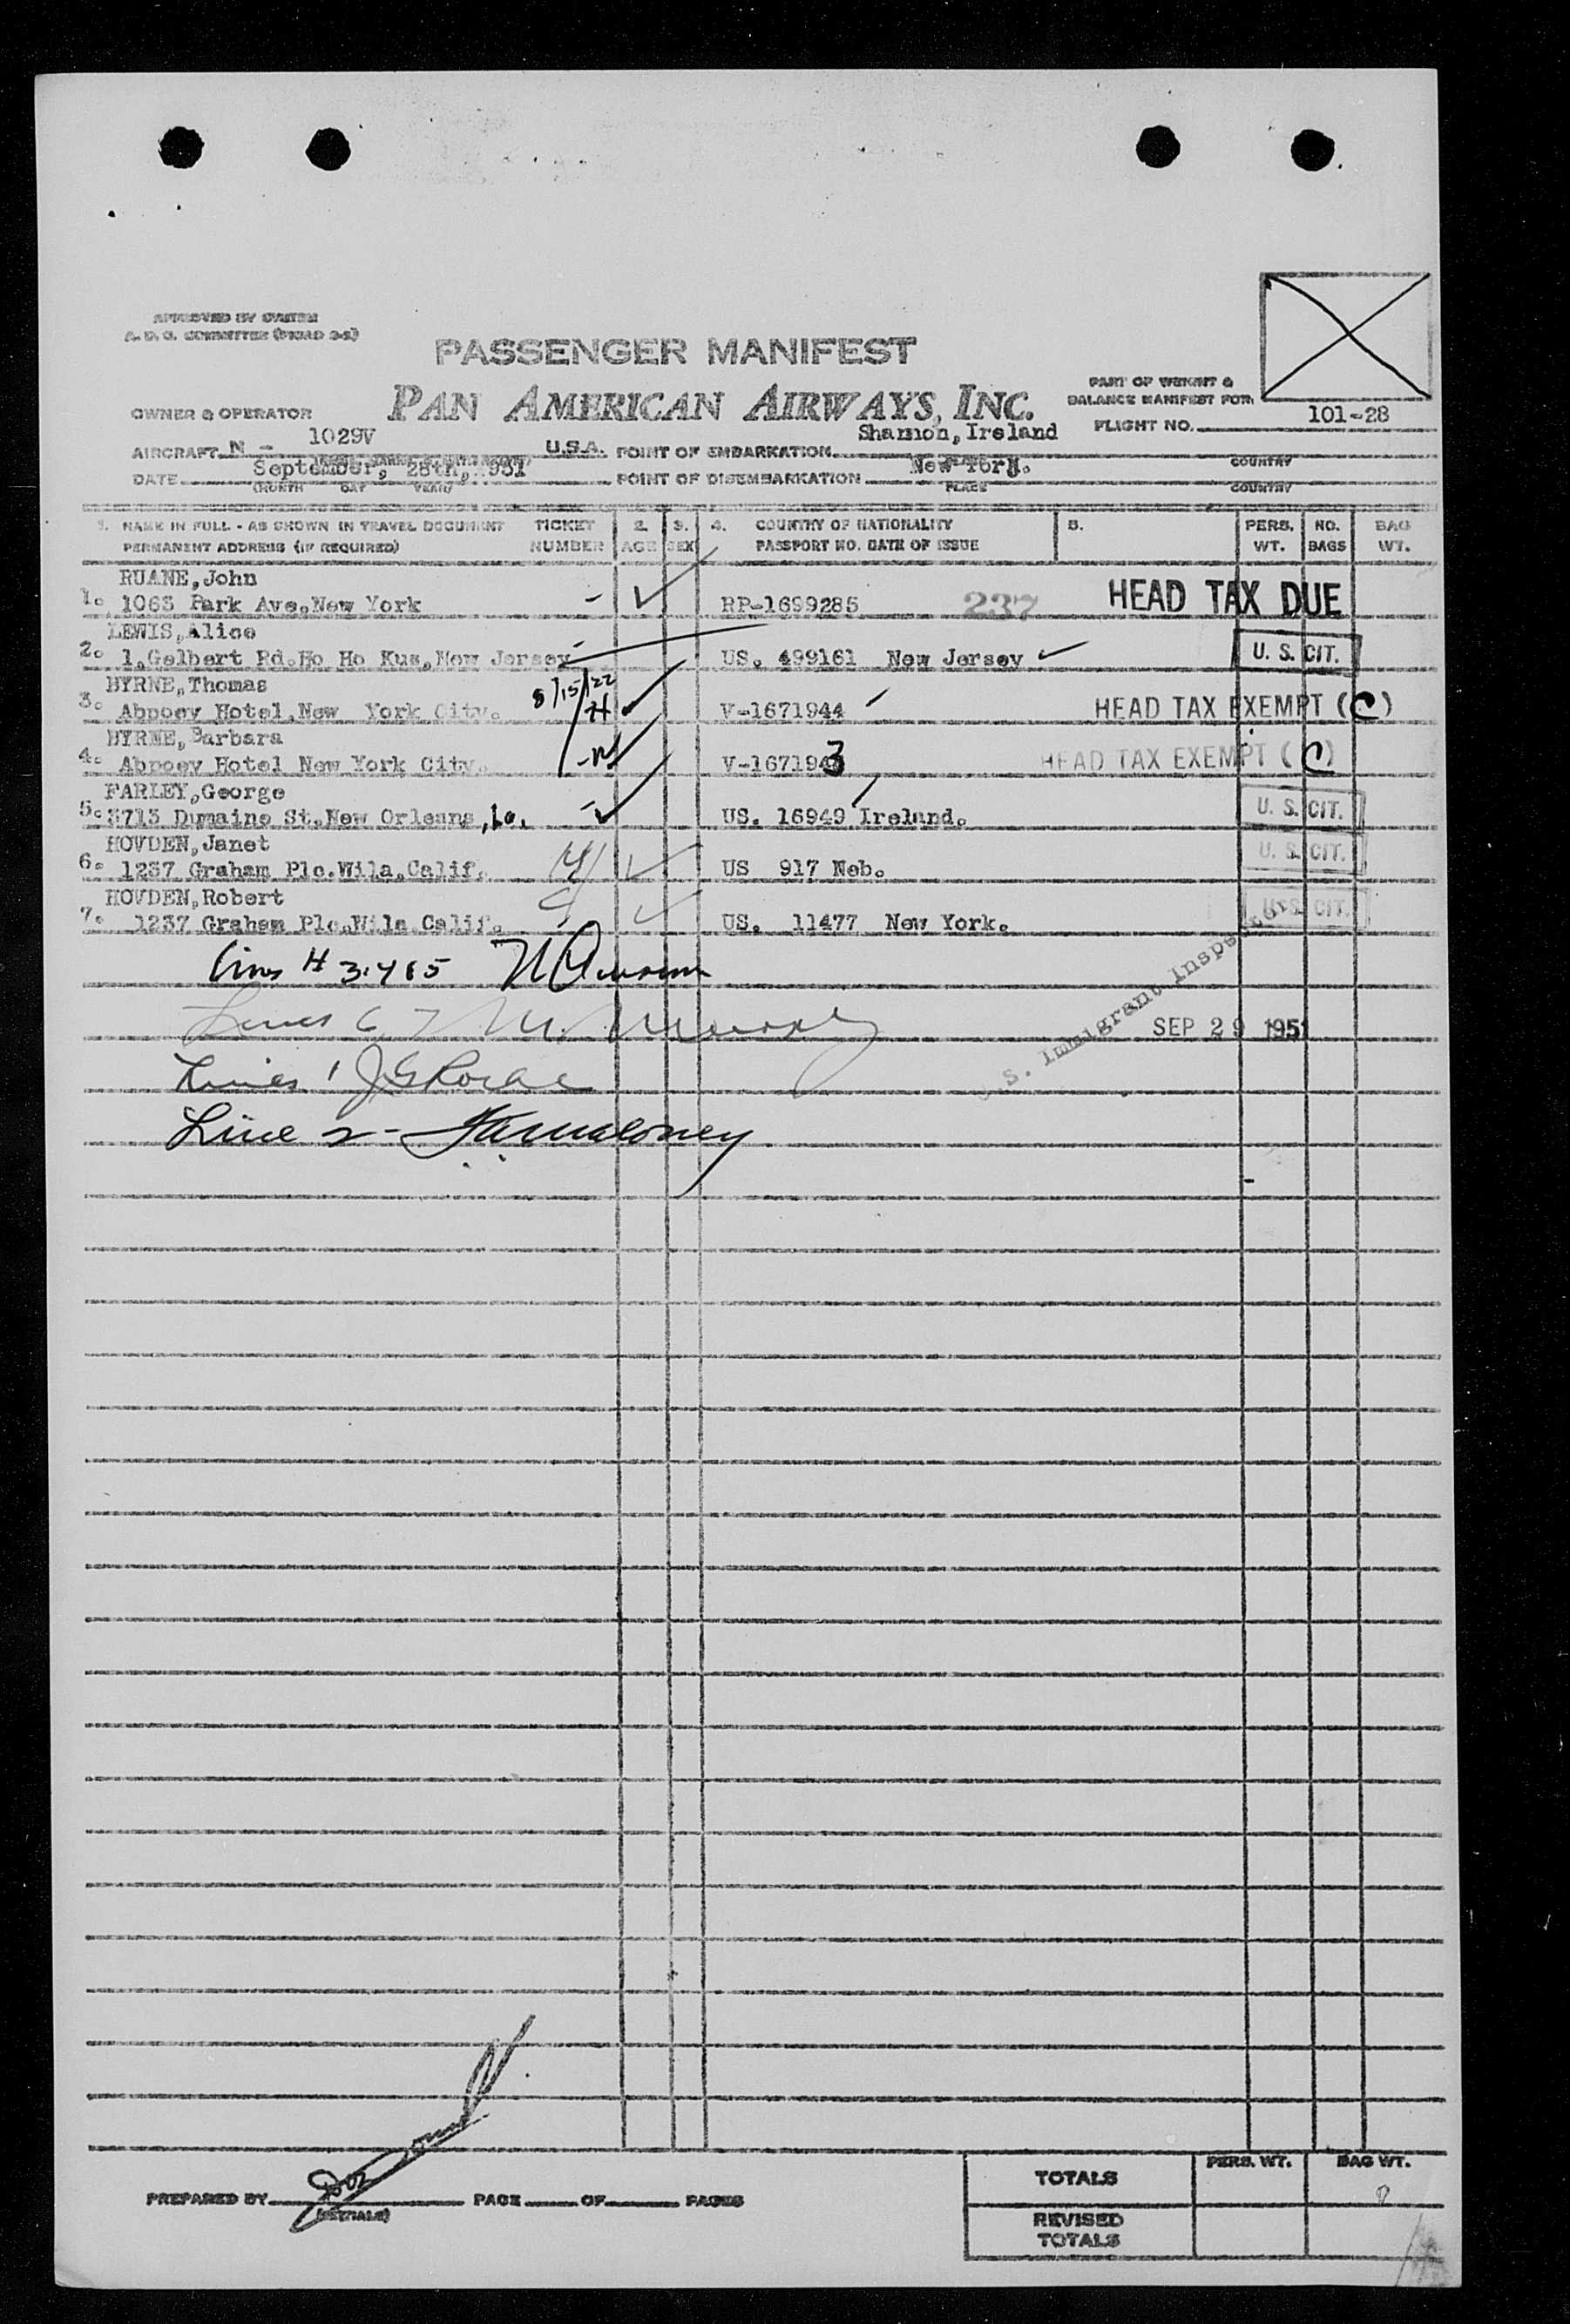 APPROVED BY
A. D. C. COMMITTEE
PASSENGER MANIFEST
PAN AMERICAN AIRWAYS, INC.
PART OF WEIGHT &
BALANCE MANIFEST FOR:
OWNER & OPERATOR
FLIGHT NO. 101-28
AIRCRAFT N - 1029V U.S.A. POINT OF EMBARKATION Shannon, Ireland
COUNTRY
DATE September, 28th, 951 POINT OF DISEMBARKATION New York.
(MONTH DAY YEAR) PLACE COUNTRY
1. NAME IN FULL - AS SHOWN IN TRAVEL DOCUMENT TICKET 2. 3. 4. COUNTRY OF NATIONALITY 5. PERS. NO. BAG
PERMANENT ADDRESS (IF REQUIRED) NUMBER AGE SEX PASSPORT NO. DATE OF ISSUE WT. BAGS WT.
RUANE,John
1. 1063 Park Ave.New York - RP-1699285 237 HEAD TAX DUE
LEWIS,Alice
2. 1,Gelbert Rd.Ho Ho Kus,New Jersey- US. 499161 New Jersey U. S. CIT.
BYRNE,Thomas 8/15/22
3. Abpoey Hotel,New York City. H V-1671944 HEAD TAX EXEMPT (C)
BYRNE,Barbara
4. Abpoey Hotel New York City. -W V-1671943 HEAD TAX EXEMPT (C)
FARLEY,George
5. 3713 Dumaine St.New Orleans,La. - US. 16949 Ireland. U. S. CIT.
HOVDEN,Janet
6. 1237 Graham Plc.Wila,Calif. US 917 Neb. U. S. CIT.
HOVDEN,Robert
7. 1237 Graham Plc.Wila Calif. US. 11477 New York. U. S. CIT.
Lines # 3.4 & 5
U.S. Immigrant Inspector
Lines 6 7 M. Murphy SEP 29 1951
Lines 1
Line 2- Maloney
PREPARED BY PAGE OF PAGES
(INITIALS)
PERS. WT. BAG WT.
TOTALS
REVISED
TOTALS